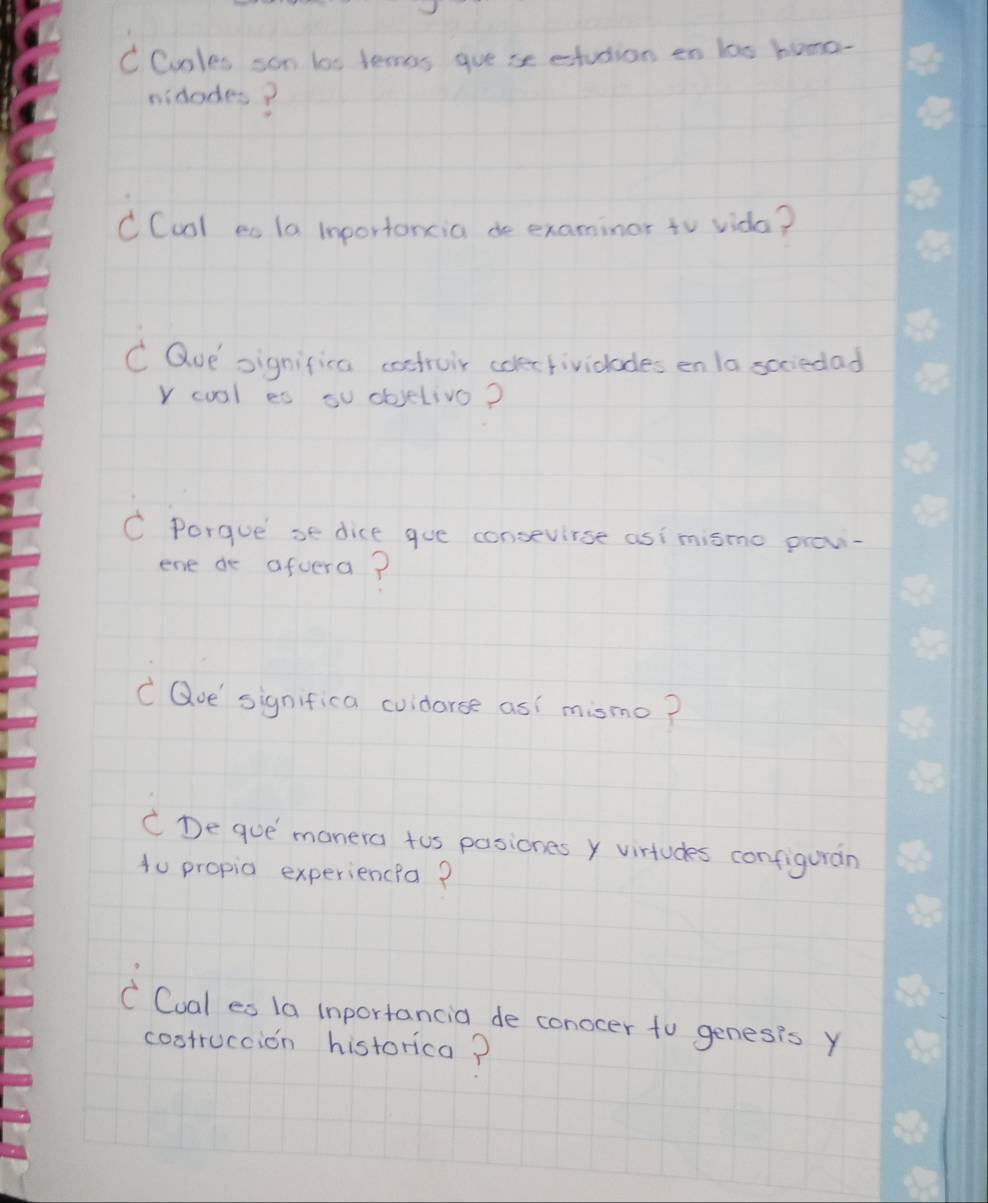 ¿Cuales son los temas que se estudian en las huma-
nidades?
¿Cual es la inportancia de examinar tu vida?
¿Qué significa costruir colectividades en la sociedad
y cual es su objetivo?
¿Porqué se dice que consevirse así mismo provi-
ene de afuera?
¿Qué significa cuidarse así mismo?
¿De qué manera tus pasiones y virtudes configurán
tu propia experiencia?
¿Cual es la inportancia de conocer tu genesis y
costrucción historíca?